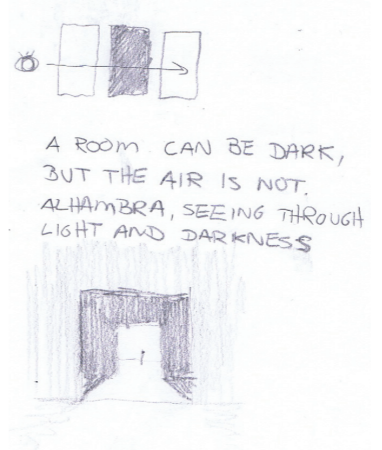 A ROOM CAN BE DARK,
BUT THE AIR IS NOT.
ALHAMBRA, SEEING THROUGH
LIGHT AND DARKNESS